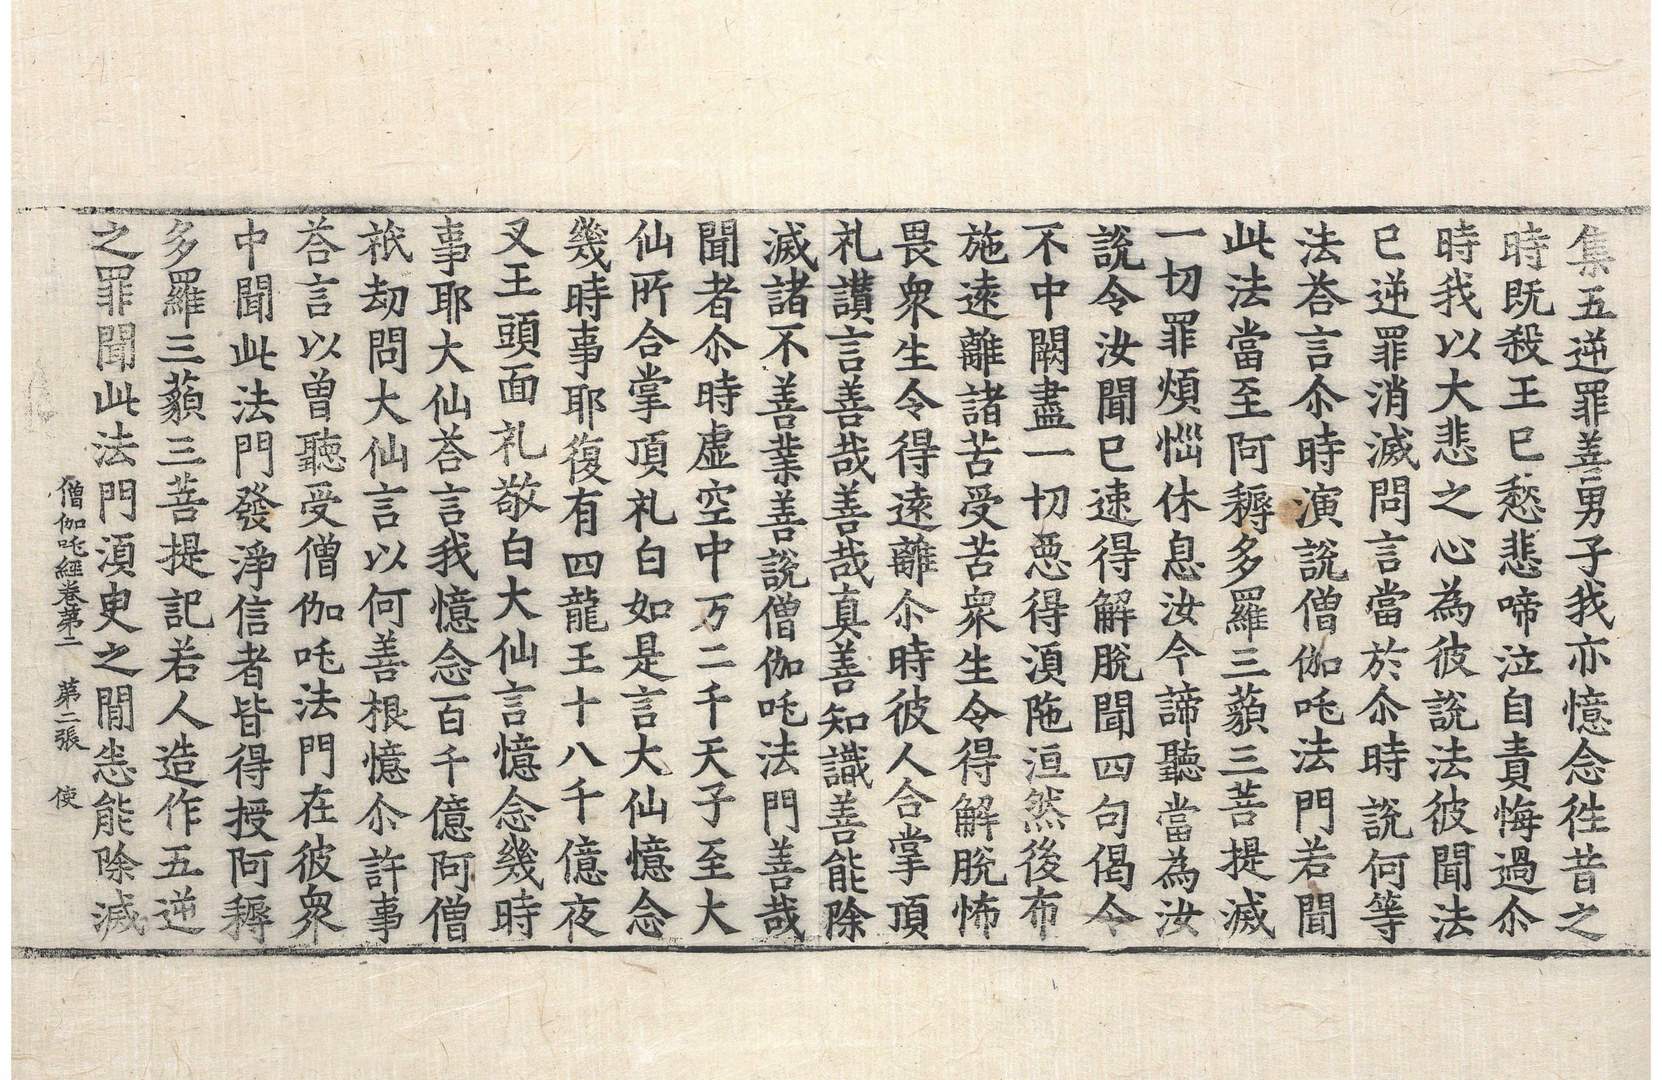 集五逆罪善男子我亦憶念徃昔之
時既殺王已愁悲啼泣自責悔過尒
時我以大悲之心為彼說法彼聞法
已逆罪消滅問言當於尒時說何等
法荅言尒時演說僧伽吒法門若聞
此法當至阿耨多羅三藐三菩提滅
一切罪煩惱休息汝今諦聽當為汝
說令汝聞已速得解脫聞四句偈令
不中闕盡一切惡得湏陁洹然後布
施遠離諸苦受苦衆生令得解脫怖
畏衆生令得遠離尒時彼人合掌頂
礼讃言善哉善哉真善知識善能除
滅諸不善業善說僧伽吒法門善哉
聞者尒時虛空中万二千天子至大
仙所合掌頂礼白如是言大仙憶念
幾時事耶復有四龍王十八千億夜
叉王頭面礼敬白大仙言憶念幾時
事耶大仙荅言我憶念百千億阿僧
祇劫問大仙言以何善根憶尒許事
荅言以曽聽受僧伽吒法門在彼衆
中聞此法門發淨信者皆得授阿耨
多羅三藐三菩提記若人造作五逆
之罪聞此法門湏臾之閒悉能除滅
僧伽吒經卷第二 第二張 使